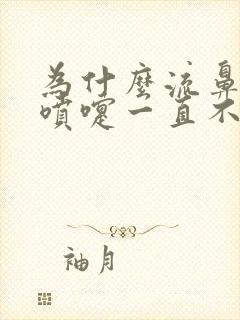 為什麼流鼻
噴嚏一直不
袖月